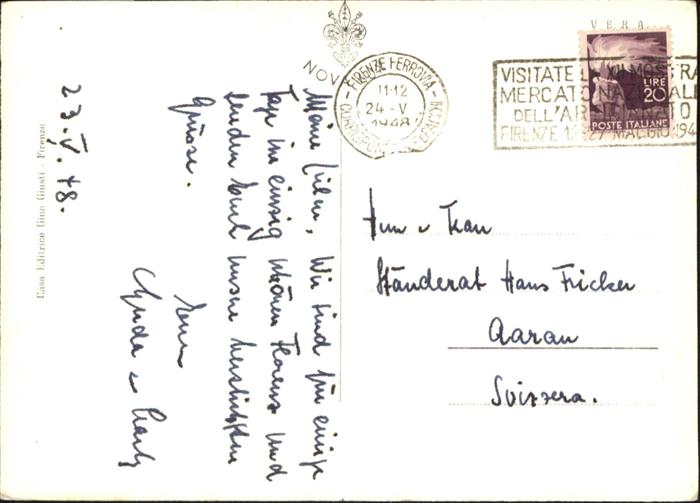 23.V.48.
Meine Lieben, Wir sind für einige
Tage im einzig schönen Florenz und
senden Euch unsere herzlichsten
Grüsse.
Eure
Casa Editrice Gino Giusti - Firenze
NOV
VERA
FIRENZE FERROVIA
11-12
24-V
1948
VISITATE LA XII MOSTRA
MERCATO NAZIONALE
DELL'ARTIGIANATO
FIRENZE 12-27 MAGGIO 194
LIRE
20
POSTE ITALIANE
Herrn u Frau
Ständerat Hans Fricker
Aarau
Svizzera.